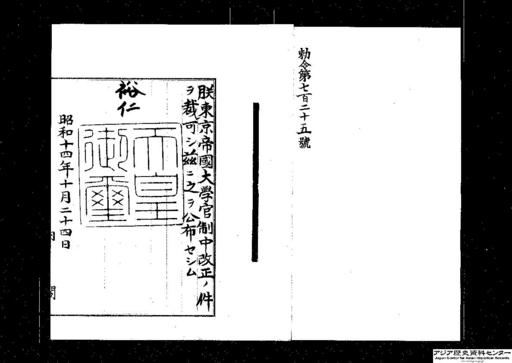 勅令第七百二十五號
朕東京帝國大學官制中改正ノ件
ヲ裁可シ茲ニ之ヲ公布セシム
裕仁
天皇御璽
昭和十四年十月二十四日
内閣
アジア歴史資料センター
Japan Center for Asian Historical Records